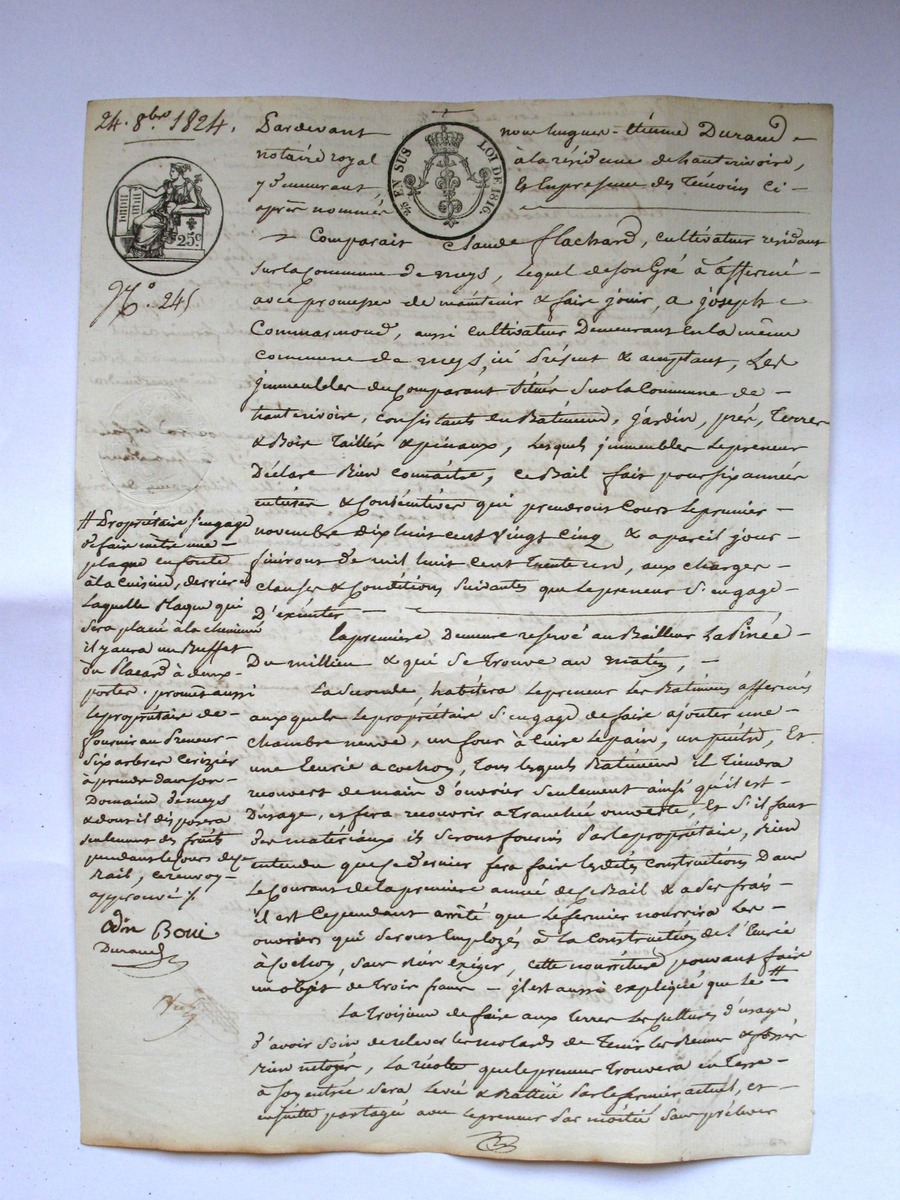 24. 8bre 1824.
Pardevant nous hugues-étienne Durand
notaire royal à la résidence de hauterivoire,
y demeurant, & En presence des Témoins Ci-
après nommés
EN SUS LOI DE 1816.
25c
No. 245
Comparait Claude flachard, cultivateur résidant
Sur la Commune de meys, lequel de son Gré à affermé
avec promesse de maintenir & faire jouir, a joseph
Commarmond, aussi cultivateur Demeurant En la même
Commune de meys, ici Présent & acceptant, Les
jmmeubles du Comparant situés Sur la Commune de
hauterivoire, Consistants En Batiments, jardin, prés, Terres
& Bois Taillis & pinaux, Lesquels jmmeubles Le preneur
Déclare Bien Connaitre, Ce Bail fait pour six années
entières & Consécutives qui prendront Cours Le premier
novembre dix huit cent vingt Cinq & a pareil jour
finiront de mil huit cent Trente un, aux charges
clauses & Conditions Suivantes que Le preneur S'engage
D'exécuter
La première Demeure reservé au Bailleur La Pinée
Du millieu & qui Se Trouve au
La Seconde, habitera Le preneur Les Batiments affermés
auxquels Le propriétaire S'engage de faire ajouter une
chambre neuve, un four à Cuire Le pain, un puits, Et
une Ecurie a cochon, Tous lesquels Batiments il Tiendra
recouvert de main d'ouvrier Seulement ainsi qu'il est
D'usage, et fera recouvrir à Tranchée ouverte, Et S'il faut
des matériaux ils Seront fournis Par Le propriétaire, Bien
entendu que Ce dernier fera faire Les dites Constructions Dans
Le Courant de La première année de Ce Bail & a Ses frais
il est Cependant arrêté que Le fermier nourrira Les
ouvriers qui Seront Employés à la Construction de L'Ecurie
à Cochon, Sans Rien exiger, Cette nourriture pouvant faire
un objet de Trois francs - jl est aussi expliqué que Le #
La Troisième de faire aux Terres Les Cultures d'usage
d'avoir Soin de relever Les molards de Tenir Les & fossés
Bien netoyés, La récolte que Le preneur Trouvera En Terre
à Son entrée Sera Levée & Battue Par Le fermier actuel, et
ensuite partagée avec Le preneur Par moitié Sans prélever
# Propriétaire S'engage
de faire mettre une
plaque en fonte
à la Cuisine, derrière
Laquelle Plaque qui
Sera placée à la cheminée
il y aura un Buffet
ou Placard à deux
portes. promet aussi
Le propriétaire de
fournir au Preneur
Six arbres Cerizier
à prendre dans Son
Domaine De meys
& dont il disposera
Seulement des fruits
pendant Le Cours de Ce
Bail, Ce renvoy
approuvé /.
Odin Boui
Durand